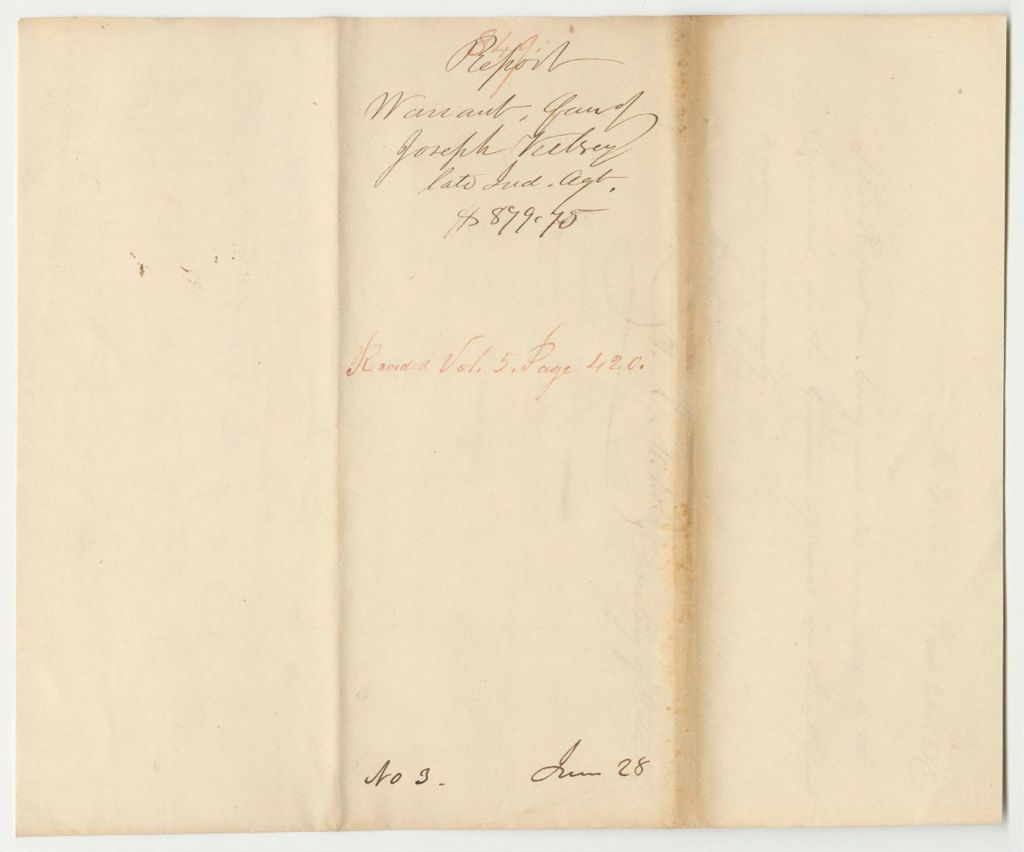 849.
Report
Warrant, favr of
Joseph Kelsey
late Ind. Agt.
$879.75
Recorded Vol. 5. Page 420.
No 3. June 28